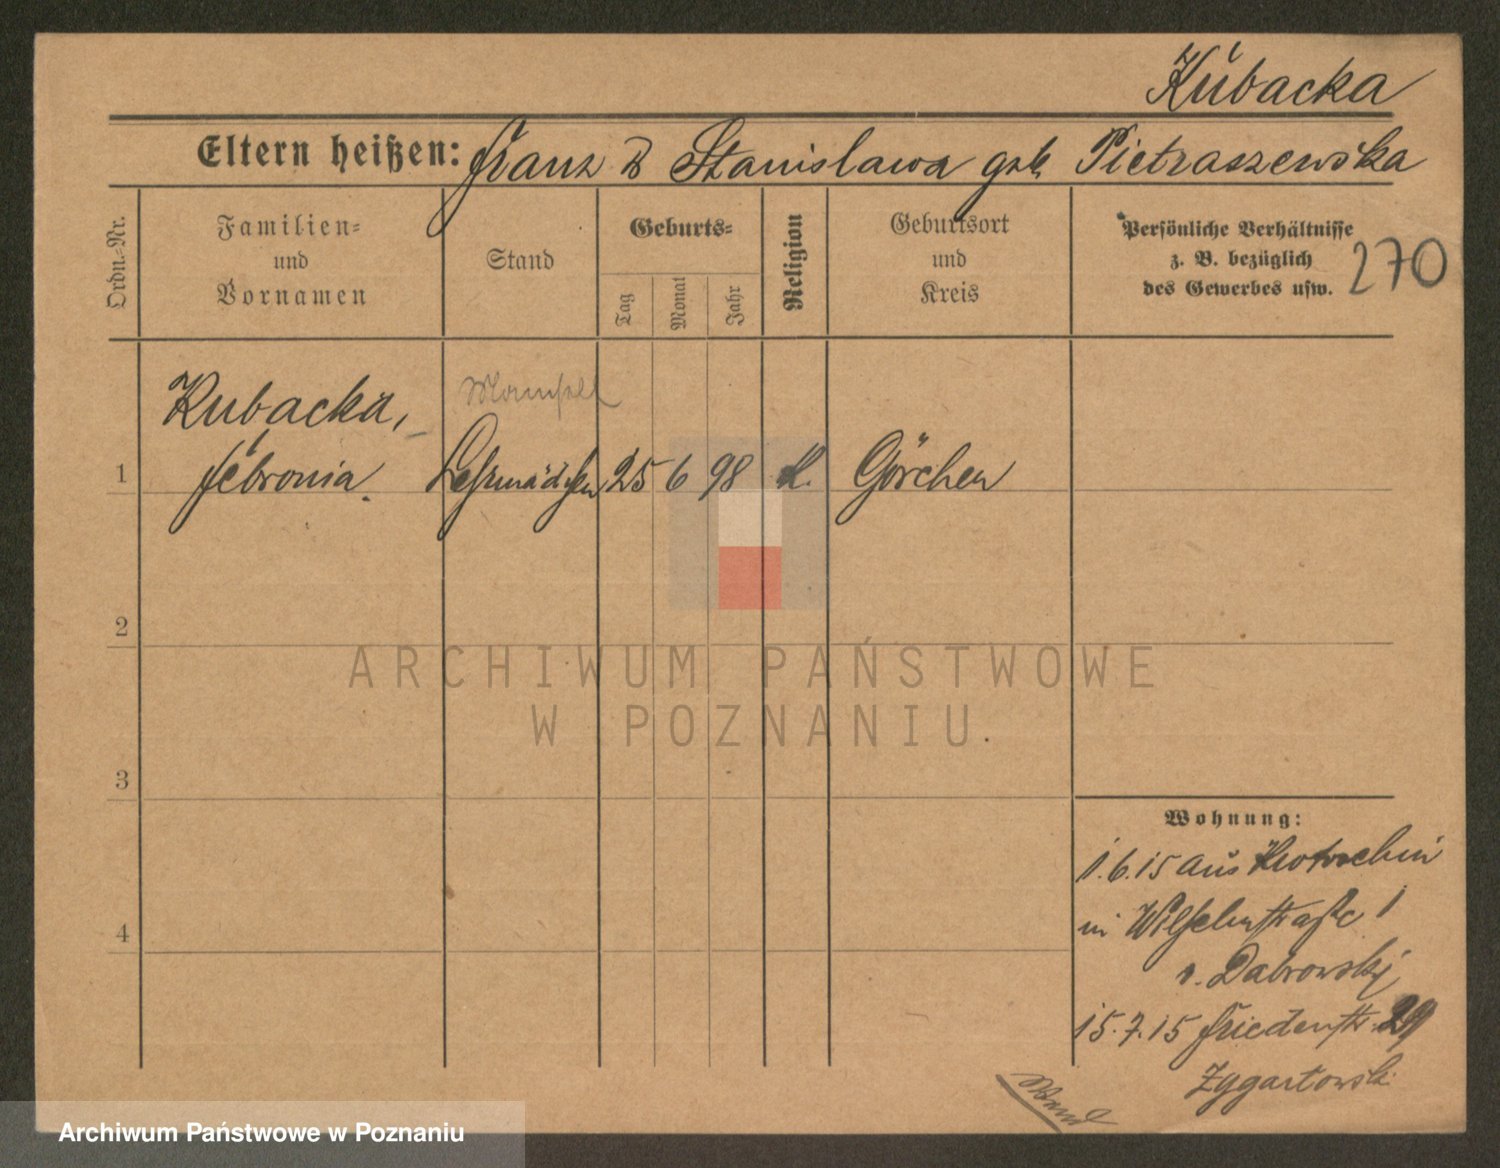 Kubacka
Eltern heißen: Franz & Stanislawa geb Pietraszewska
Ordn.-Nr.
Familien-
und
Vornamen
Stand
Geburts-
Tag
Monat
Jahr
Religion
Geburtsort
und
Kreis
Persönliche Verhältnisse
z. B. bezüglich
des Gewerbes usw.
270
Mamsell
Kubacka,
1 Febronia. Lehrmädchen 25 6 98 K. Görchen
2
3
4
ARCHIWUM PAŃSTWOWE
W POZNANIU
Wohnung:
1.6.15 aus Krotoschin
in Wilhelmstraße 1
Dabrowski
15.7.15 Friedenstr. 29
Zygartowski
Archiwum Państwowe w Poznaniu